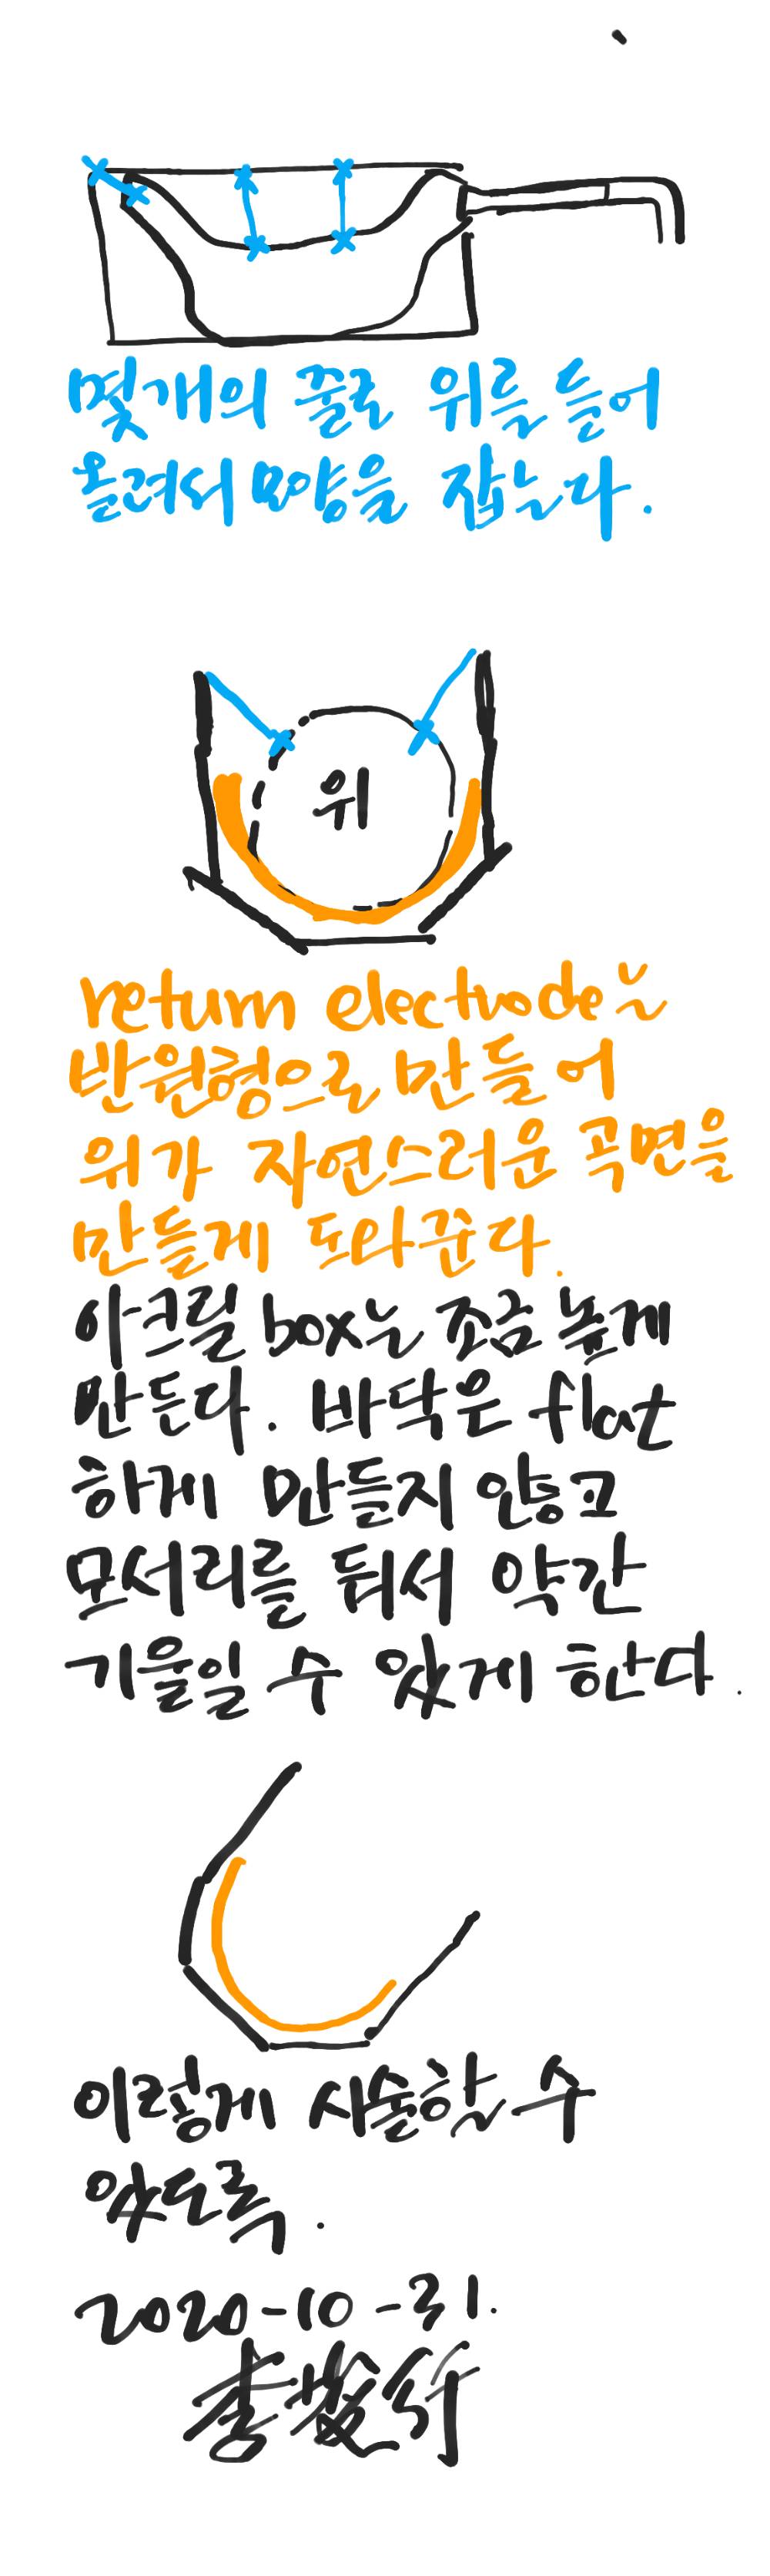 몇개의 줄로 위를 들어
올려서 모양을 잡는다.
위
return electrode는
반원형으로 만들어
위가 자연스러운 곡면을
만들게 도와준다.
아크릴 box는 조금 높게
만든다. 바닥은 flat
하게 만들지 않고
모서리를 둬서 약간
기울일 수 있게 한다.
이렇게 시술할 수
있도록.
2020-10-31.
李